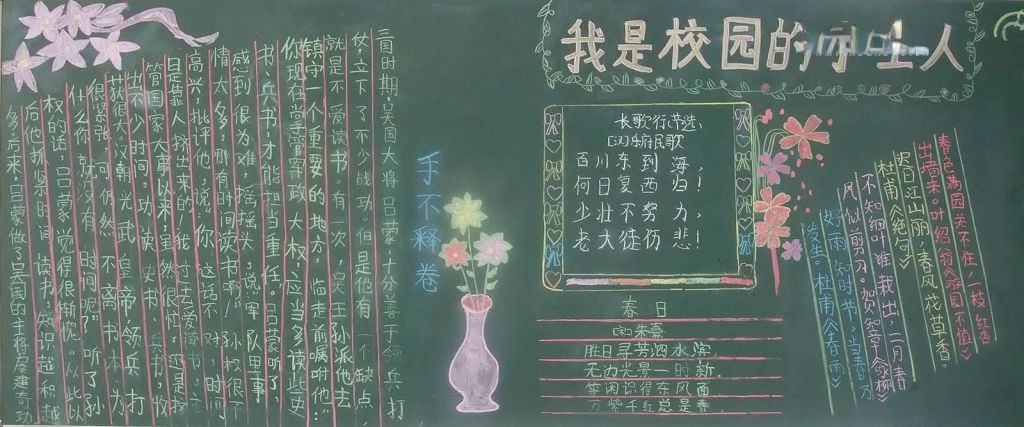 三国时期,吴国大将吕蒙十分善于领兵打
仗,立下了不少战功。但是他有一个缺点
就是不爱读书。有一次,吴王孙派他去
镇守一个重要的地方。临走前嘱咐他:
你现在掌管军政大权,应当多读些史
书、兵书,才能担当重任。吕蒙听了,
感到很为难,摇摇头,说:"军队里事
情太多,那有时间读书啊!孙权很不
高兴,批评他说:"你这话不对,时间
是靠人挤出来的。我过去爱读书,主
管国家大事以来,虽然很忙,还是挤
出不少时间,功读史书、兵书,收
获很大。汉朝光武皇帝领兵打
很紧张,可仍然不离书本,为
什么你就没有时间呢?"听了孙
权的话,吕蒙觉得很惭愧。从此以
后他抓紧时间读书,知识越积越
多后来,吕蒙做了吴国的主将屡建奇功
手不释卷
我是校园的 人
长歌行(节选)
(汉)乐府民歌
百川东到海,
何日复西归!
少壮不努力,
老大徒伤悲!
春日
(宋)朱熹
胜日寻芳泗水滨,
无边光景一时新。
等闲识得东风面,
万紫千红总是春。
春色满园关不住,一枝红杏
出墙来。叶绍翁《游园不值》
迟日江山丽,春风花草香。
杜甫《绝句》
不知细叶谁裁出,二月春
风似剪刀。贺知章《咏柳》
好雨知时节,当春乃
发生。杜甫《春雨》